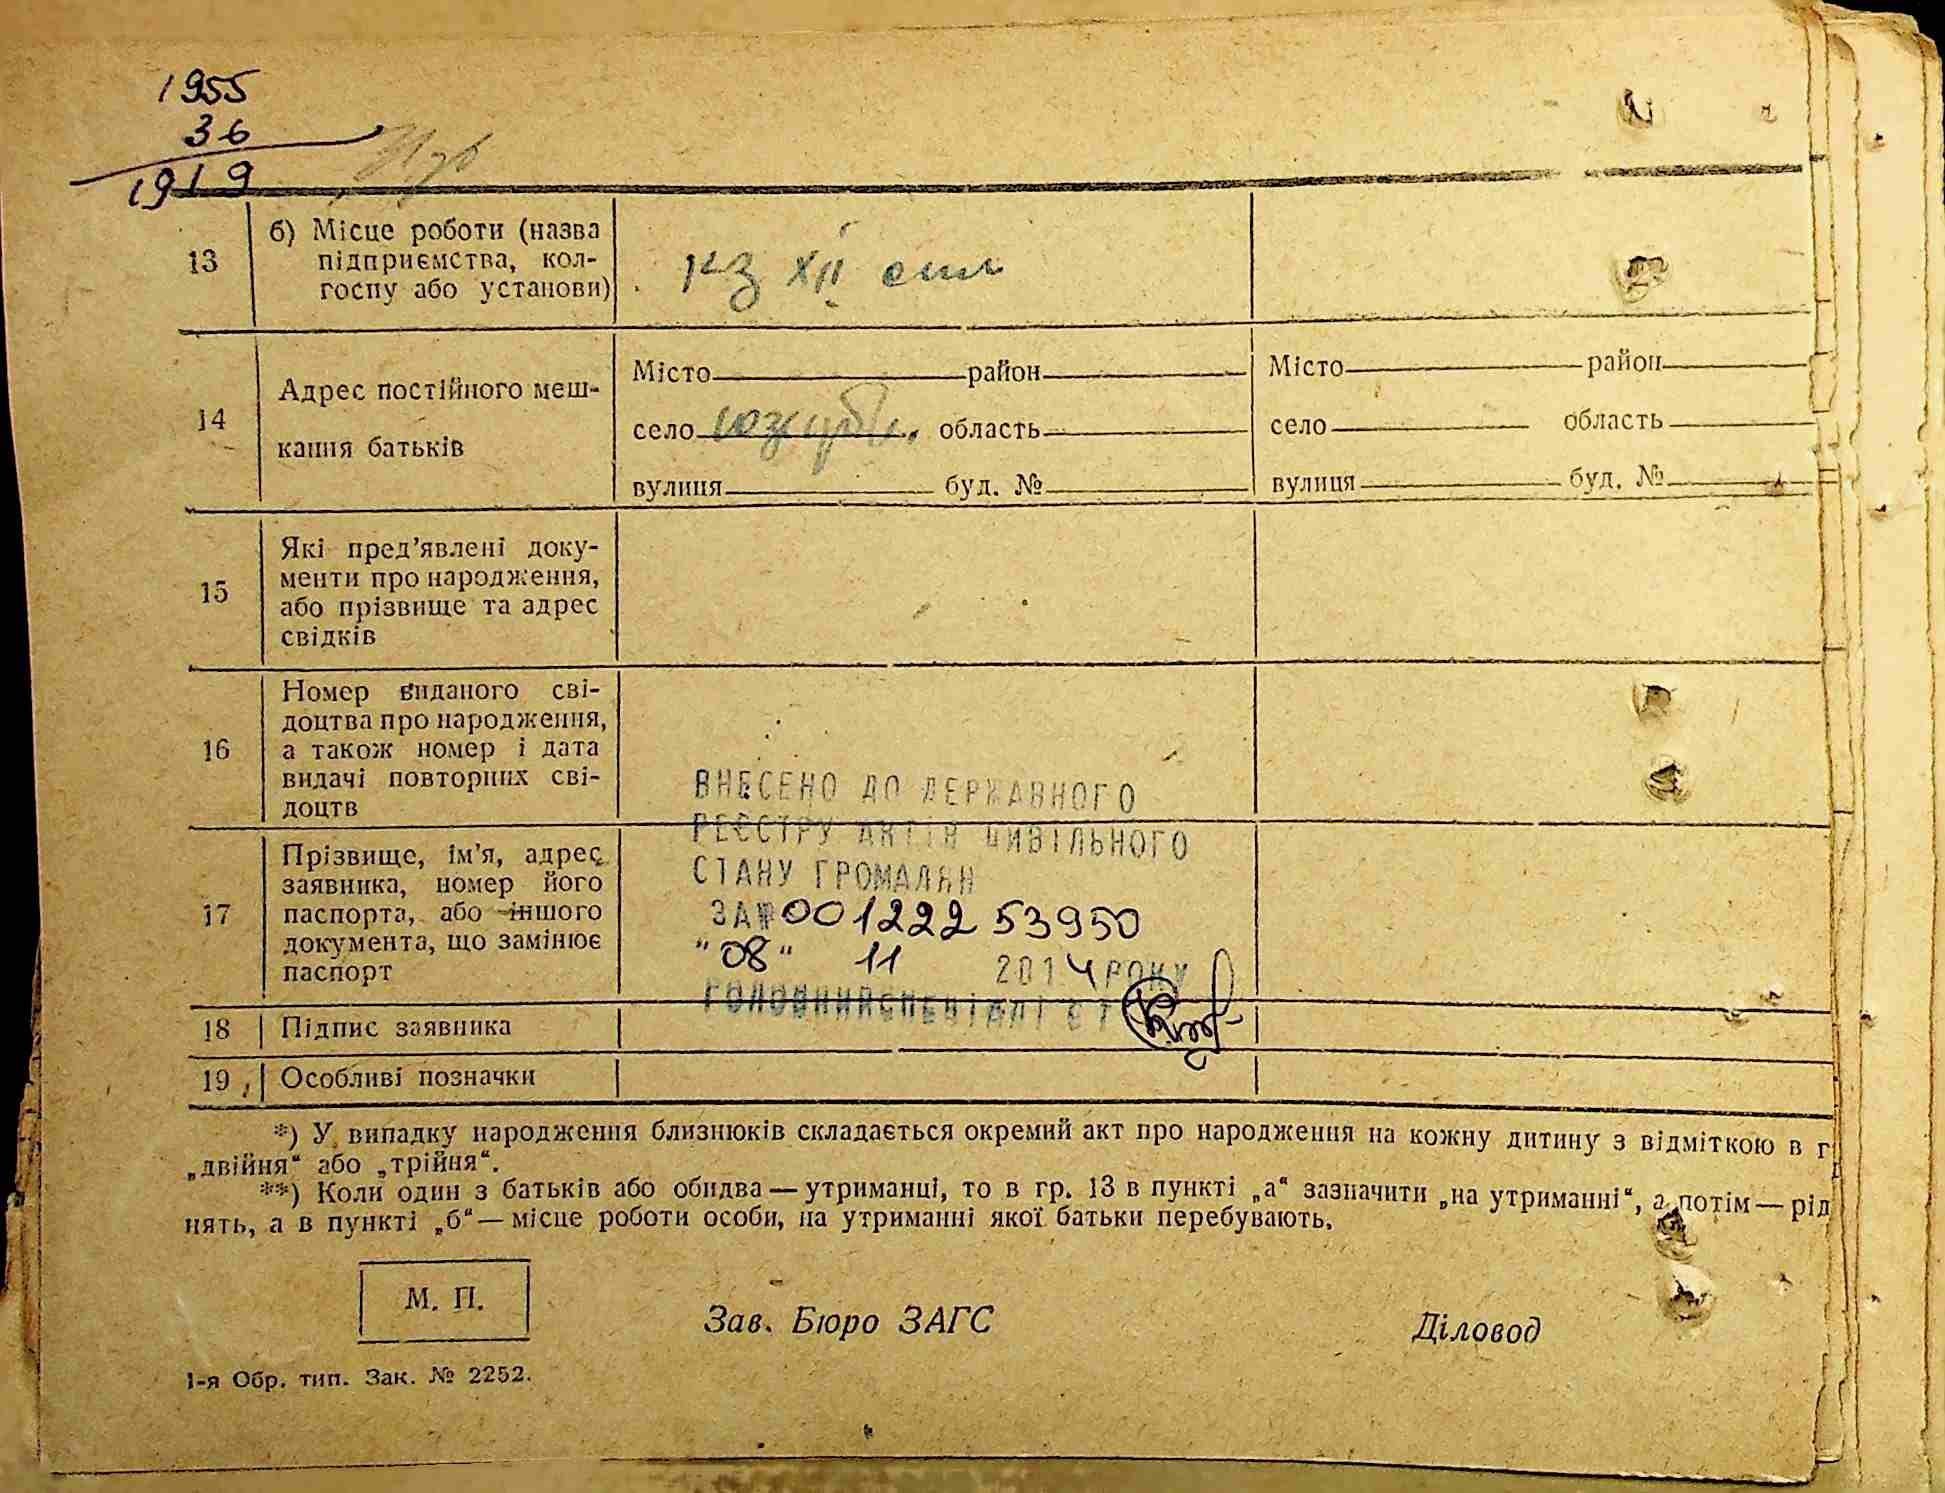 1955
36
1919
13
б) Місце роботи (назва
підприємства, кол-
госпу або установи)
кз XII
14
Адрес постійного меш-
кання батьків
Місто район
село область
вулиця буд. №
Місто район
село область
вулиця буд. №
15
Які пред’явлені доку-
менти про народження,
або прізвище та адрес
свідків
16
Номер виданого сві-
доцтва про народження,
а також номер і дата
видачі повторних сві-
доцтв
ВНЕСЕНО ДО ДЕРЖАВНОГО
РЕЄСТРУ АКТІВ ЦИВІЛЬНОГО
СТАНУ ГРОМАДЯН
ЗА № 00122253950
"08" 11 2014 РОКУ
ГОЛОВНИЙ СПЕЦІАЛІСТ
17
Прізвище, ім’я, адрес
заявника, номер його
паспорта, або іншого
документа, що замінює
паспорт
18
Підпис заявника
19
Особливі позначки
*) У випадку народження близнюків складається окремий акт про народження на кожну дитину з відміткою в г
„двійня“ або „трійня“.
**) Коли один з батьків або обидва — утриманці, то в гр. 13 в пункті „а“ зазначити „на утриманні“, а потім — рід
нять, а в пункті „б“ — місце роботи особи, на утриманні якої батьки перебувають.
М. П.
Зав. Бюро ЗАГС
Діловод
1-я Обр. тип. Зак. № 2252.